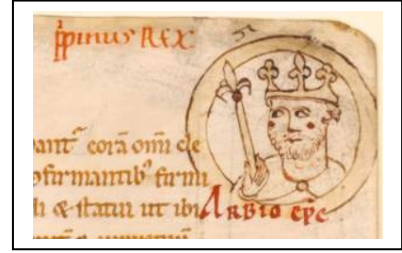 p̄pinus REX
corā om̄i cle
ofirmantib⁹ firmi
li & statui ut ibi ARBIO ep̄c